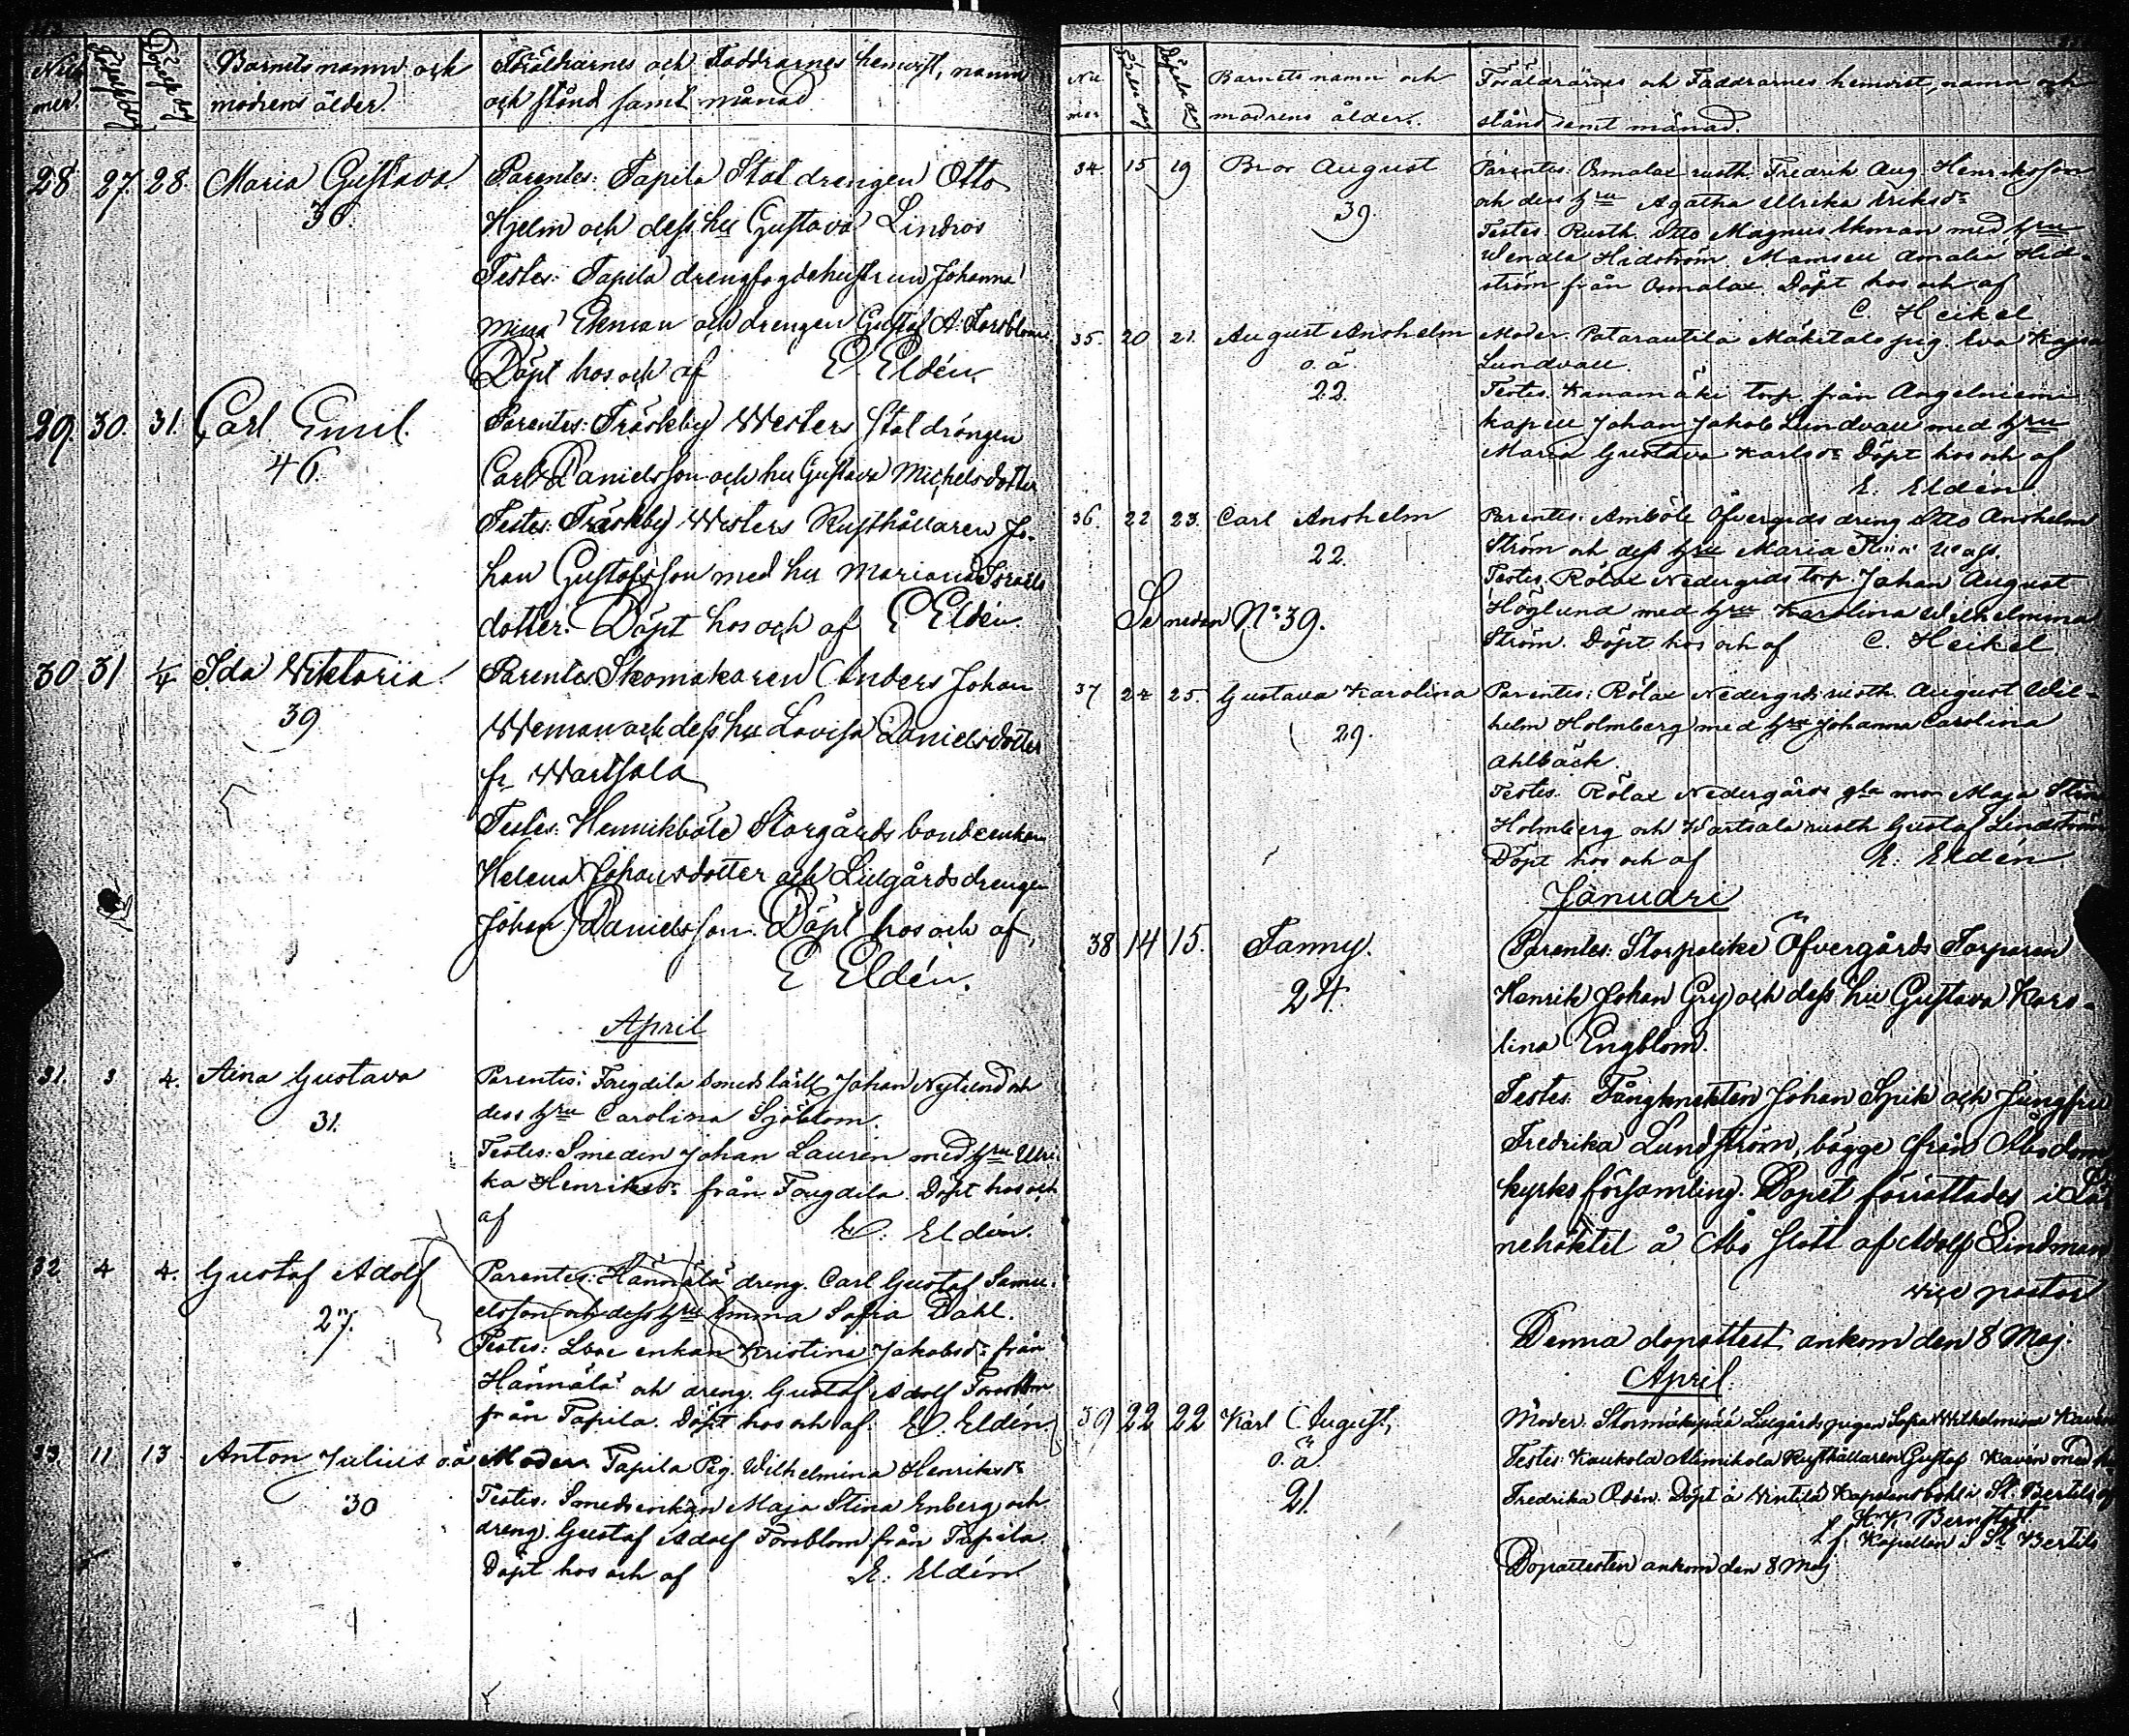 Num
mer
Födelsedag
Döpelsedag
Barnets namn och
modrens ålder.
Föräldrarnes och Faddrarnes hemvist, namn
och stånd samt månad.
28 27. 28. Maria Gustava
36.
Parentes: Tapila Stal drengen Otto
Hjelm och dess hu Gustava Lindros
Testes: Tapila drengfogdehustrun Johanna
Mina Ekman och drengen Gustaf A. Forsblom.
Döpt hos och af E Eldén.
29. 30. 31. Carl Emil.
46.
Parentes: Träskby Westers Stal drängen
Carl Danielsson och hu Gustava Michelsdotter
Testes: Träskby Westers Rusthållaren Jo-
han Gustafsson med hu Mariana Israels
dotter. Döpt hos och af E Eldén.
30 31 1/4 Ida Wiktoria.
39
Parentes. Skomakaren Anders Johan
Weman och dess hu Lovisa Danielsdotter
fr. Wartsala
Testes: Henrikböle Storgårds bondeenkan
Helena Johansdotter och Lillgårds drengen
Johan Danielsson. Döpt hos och af,
E Eldén.
April
31. 3 4. Aina Gustava
31.
Parentes: Taigdila smeds lärll Johan Nylund och
dess hru Carolina Sjöblom.
Testes: Smeden Johan Laurén med hru Ulri
ka Henriksdr från Taigdila. Döpt hos och
af E. Eldén.
32. 4 4. Gustaf Adolf
27.
Parentes: Hännälä dreng. Carl Gustaf Samu-
elsson och dess hru Emma Sofia Dahl.
Testes: enkan Kristina Jakobsdr från
Hännälä och dreng. Gustaf Adolf Forsblom
från Tapila. Döpt hos och af. E. Eldén.
33. 11 13 Anton Julius o.ä
30
Moder. Tapila Pig. Wilhelmina Henriksdr
Testes. Smedsenkan Maja Stina Enberg och
dreng. Gustaf Adolf Forsblom från Tapila.
Döpt hos och af E. Eldén
Nu
mer
Födelsedag
Döpelsedag
Barnets namn och
modrens ålder.
Föräldrarnes och Faddrarnes hemvist, namn och
stånd samt månad.
34 15 19 Bror August
39.
Parentes: Osmalax rusth. Fredrik Aug. Henriksson
och dess hru Agatha Ulrika Eriksdr
Testes. Rusth. Otto Magnus Ekman med hru
Wendla Hidström Mamsell Amalia Hid-
ström från Osmalax. Döpt hos och af
C. Heikel
35. 20 21. August Anshelm
o. ä.
22.
Moder. Patarautila Mäkitalo pig. Eva Kajsa
Lundvall.
Testes. Kanamäki torp. från Angelniemi
kapell Johan Jakob Lundvall med hru
Maria Gustava Karlsdr Döpt hos och af
E. Eldén.
36. 22 23. Carl Anshelm
22.
Se nedan No. 39.
Parentes. Amböle Öfvergrds dreng Otto Anshelm
Ström och dess hru Maria Stina
Testes. Rölax Nedergrds torp. Johan August
Höglund med hru Karolina Wilhelmina
Ström. Döpt hos och af C. Heikel
37 24 25. Gustava Karolina
29.
Parentes: Rölax Nedergrds rusth. August Wil-
helm Holmberg med hru Johanna Carolina
Ahlbäck.
Testes. Rölax Nedergårds gla mor Maja Stina
Holmberg och Wartsala rusth. Gustaf Lindström
Döpt hos och af E. Eldén
Januari
38 14 15. Fanny.
24.
Parentes: Storpelike Öfvergårds Torparen
Henrik Johan Gry och dess hu Gustava Karo-
lina Engblom.
Testes. Fångknekten Johan Spik och Jungfru
Fredrika Lundström, bägge från Åbo dom-
kyrko församling. Dopet förrättades i Lä-
nehäktet å Åbo slott af Adolf Lindman
vice pastor
Denna dopattest ankom den 8 Maj.
April.
39 22 22 Karl August,
o. ä.
21.
Moder. Lillgårds pigan Sofia Wilhelmina Kavén
Testes: Kaukola Alimikola Rusthållaren Gustaf Kavén med hu
Fredrika Odén. Döpt å Wintilä Kapellansbohl i St. Bertils af
K. K. Bernstedt
t. f. Kapellan i St Bertils
Dopattesten ankom den 8 Maj